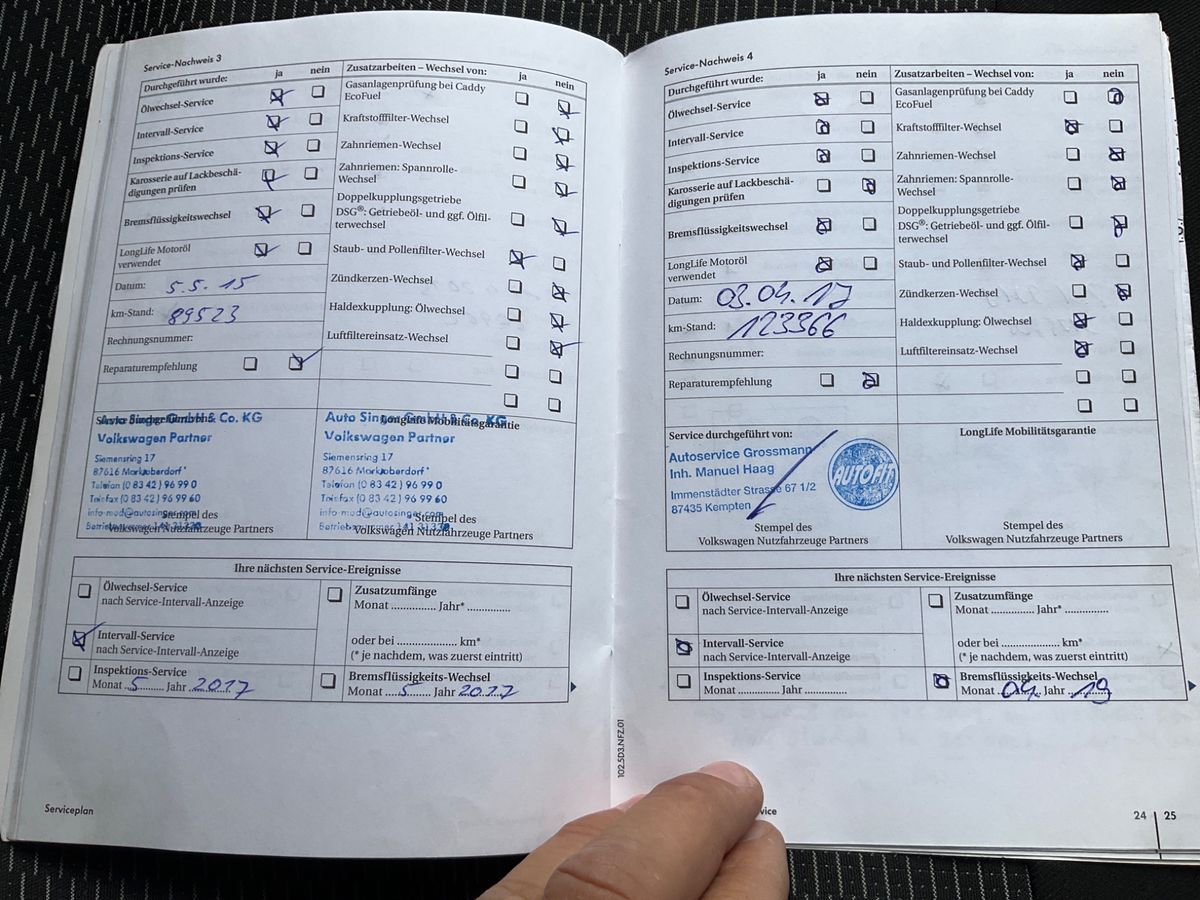 Service-Nachweis 3
Durchgeführt wurde: ja nein
Ölwechsel-Service
Intervall-Service
Inspektions-Service
Karosserie auf Lackbeschä-
digungen prüfen
Bremsflüssigkeitswechsel
LongLife Motoröl
verwendet
Datum: 5.5.15
km-Stand: 89523
Rechnungsnummer:
Reparaturempfehlung
Zusatzarbeiten – Wechsel von: ja nein
Gasanlagenprüfung bei Caddy
EcoFuel
Kraftstofffilter-Wechsel
Zahnriemen-Wechsel
Zahnriemen: Spannrolle-
Wechsel
Doppelkupplungsgetriebe
DSG®: Getriebeöl- und ggf. Ölfil-
terwechsel
Staub- und Pollenfilter-Wechsel
Zündkerzen-Wechsel
Haldexkupplung: Ölwechsel
Luftfiltereinsatz-Wechsel
Auto Singer GmbH & Co. KG
Volkswagen Partner
Siemensring 17
87616 Marktoberdorf
Telefon (0 83 42) 96 99 0
Telefax (0 83 42) 96 99 60
info-mod@autosinger.com
Stempel des
Volkswagen Nutzfahrzeuge Partners
LongLife Mobilitätsgarantie
Auto Singer GmbH & Co. KG
Volkswagen Partner
Siemensring 17
87616 Marktoberdorf
Telefon (0 83 42) 96 99 0
Telefax (0 83 42) 96 99 60
info-mod@autosinger.com
Stempel des
Volkswagen Nutzfahrzeuge Partners
Ihre nächsten Service-Ereignisse
Ölwechsel-Service
nach Service-Intervall-Anzeige
Intervall-Service
nach Service-Intervall-Anzeige
Inspektions-Service
Monat 5 Jahr 2017
Zusatzumfänge
Monat ............... Jahr* ..............
oder bei .................... km*
(* je nachdem, was zuerst eintritt)
Bremsflüssigkeits-Wechsel
Monat 5 Jahr 2017
Serviceplan
102.5D3.NFZ.01
Service-Nachweis 4
Durchgeführt wurde: ja nein
Ölwechsel-Service
Intervall-Service
Inspektions-Service
Karosserie auf Lackbeschä-
digungen prüfen
Bremsflüssigkeitswechsel
LongLife Motoröl
verwendet
Datum: 03.04.17
km-Stand: 123366
Rechnungsnummer:
Reparaturempfehlung
Zusatzarbeiten – Wechsel von: ja nein
Gasanlagenprüfung bei Caddy
EcoFuel
Kraftstofffilter-Wechsel
Zahnriemen-Wechsel
Zahnriemen: Spannrolle-
Wechsel
Doppelkupplungsgetriebe
DSG®: Getriebeöl- und ggf. Ölfil-
terwechsel
Staub- und Pollenfilter-Wechsel
Zündkerzen-Wechsel
Haldexkupplung: Ölwechsel
Luftfiltereinsatz-Wechsel
Service durchgeführt von:
Autoservice Grossmann
Inh. Manuel Haag
Immenstädter Strasse 67 1/2
87435 Kempten
AUTOFIT
Stempel des
Volkswagen Nutzfahrzeuge Partners
LongLife Mobilitätsgarantie
Stempel des
Volkswagen Nutzfahrzeuge Partners
Ihre nächsten Service-Ereignisse
Ölwechsel-Service
nach Service-Intervall-Anzeige
Intervall-Service
nach Service-Intervall-Anzeige
Inspektions-Service
Monat ............... Jahr ...............
Zusatzumfänge
Monat ............... Jahr* ..............
oder bei .................... km*
(* je nachdem, was zuerst eintritt)
Bremsflüssigkeits-Wechsel
Monat 04 Jahr 19
vice
24 | 25